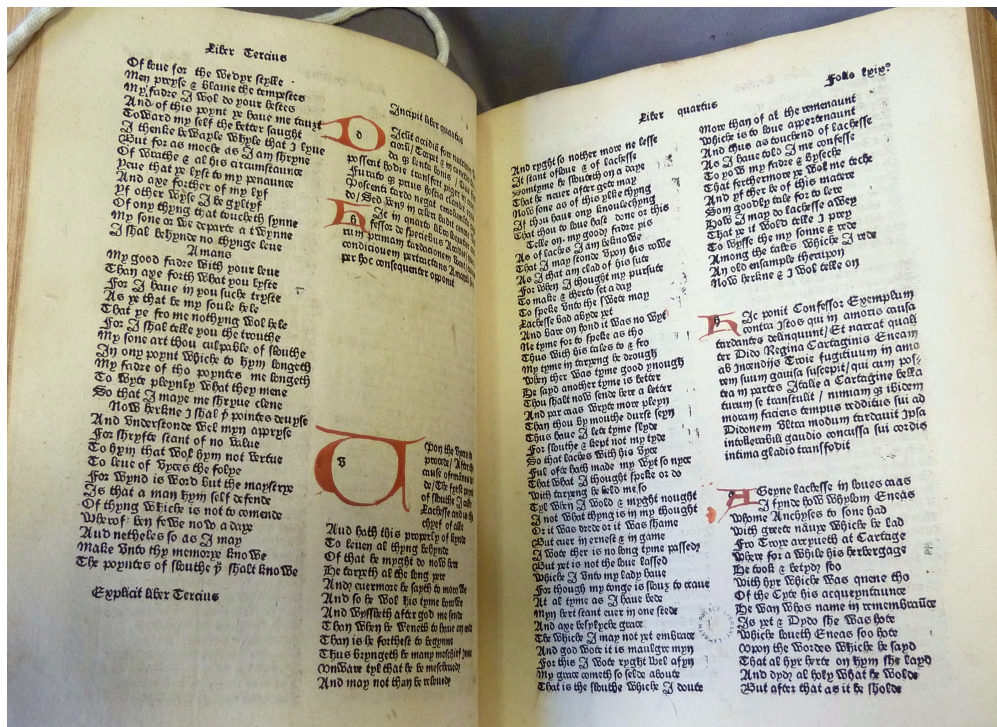 Liber Tercius
Of loue for the wedyr stylle
Men preyse & blame the tempestes
My fadre I wol do your hestes
And of this poynt ye haue me tauzt
Toward my self the better saught
I thenke be wayle whyle that I lyue
But for as moche as I am shryue
Of wrathe & al his circumstaunce
yeue that ye lyst to my penaunce
And axe forther of my lyf
yf other wyse I be gyltyf
Of ony thyng that toucheth synne
My sone or we departe a twynne
I shal behynde no thynge leue
Amans
My good fadre with your leue
Than axe forth what you lyste
For I haue in you suche tryste
As ye that be my soule hele
That ye fro me nothyng wol hele
For I shal telle you the trouthe
My sone art thou culpable of slouthe
In ony poynt whiche to hym longeth
My fadre of tho poyntes me longeth
To wyte pleynly what they mene
So that I maye me shryue clene
Now herkne I shal þ pointes deuyse
And vnderstonde wel myn appryse
For shryfte stant of no value
To hym that wol hym not vertue
To leue of vyces the folye
For wynd is word but the maystrye
Is that a man hym self defende
Of thyng whiche is not to comende
wherof ben fewe now a daye
And netheles so as I may
Make vnto thy memorye knowe
The poyntes of slouthe þ shalt knowe
Explicit liber Tercius
Incipit liber quartus
possent hodie transfert piger
per hoc consequenter opponit
Vpon the vyces
procede
cause of
of slouthe
chyef of alle
And hath this propryly of kynde
To leuen al thyng behynde
Of that he myght do now here
He taryeth al the long yere
And euermore he sayth to morowe
And so he wol his tyme borowe
And wyssheth after god me sende
Than when he weneth to haue an ende
Than is he forthest to begynne
Thus bryngeth he many meschief Inne
vnware tyl that he be mescheued
And may not than be releued
Liber quartus
Folio lxix°
And ryght so nother more ne lesse
It stant of loue & of lachesse
Somtyme he sloutheth on a daye
That he neuer after gete may
Now sone as of this ylke thyng
If thou haue ony knoulechyng
That thou to loue hast done or this
Telle on my goody fadre yis
As of lachesse I am beknowe
That I may stonde vpon his rowe
As I that am clad of his sute
For when I thought my pursute
To make & therto set a day
To speke vnto the swete may
Lachesse bad abyde yet
And bare on hond it was no wyt
Ne tyme for to speke as tho
Thus with his tales to & fro
My tyme in taryeng he drough
when ther was tyme good ynough
He sayd another tyme is better
Thou shalt now sende here a letter
And par caas wryte more pleyn
Than thou by mouthe durst seyn
Thus haue I lete tyme slyde
For slouthe & kept not my tyde
So that lachesse with his vyce
Ful ofte hath made my wyt so nyce
That what I thought speke or do
with taryeng he held me so
Tyl when I wold & myght nought
I not what thyng is in my thought
Or it was drede or it was shame
But euer in ernest & in game
I wote ther is no long tyme passed
But yet is not the loue lassed
whiche I vnto my lady haue
For though my tonge is slouz to craue
At al tyme as I haue bede
Myn hert stant euer in one stede
And axe besylyche grace
The whiche I may not yet embrace
And god wote it is maulgre myn
For this I wote ryght wel afyn
My grace cometh so selde aboute
That is the slouthe whiche I doute
More than of al the remenaunt
whiche is to loue appertenaunt
And thus as touchend of lachesse
As I haue told I me confesse
To yow my fadre & byseche
That ferthermore ye wol me teche
And yf ther be of this matere
Som goodly tale for to lere
How I may do lachesse awey
That ye it wold telle I prey
To wysse the my sonne & rede
Among the tales whiche I rede
An old ensample therupon
Now herkne & I wol telle on
Hic ponit Confessor Exemplum
contra Istos qui in amoris causa
tardantes delinquunt/Et narrat quali
ter Dido Regina Cartaginis Eneam
ab Incendijs Troie fugitiuum in amo
rem suum gauisa suscepit/qui cum pos-
tea in partes Italie a Cartagine bella
turum se transtulit / nimiam qz ibidem
moram faciens tempus redditus sui ad
Didonem vltra modum tardauit Ipsa
intollerabili gaudio concussa sui cordis
intima gladio transfodit
Ageyne lachesse in loues caas
I fynde how whylom Eneas
whome Anchyses to sone had
with greete nauye whiche he lad
Fro Troye arryueth at Cartage
where for a while his herbergage
He took & betydd soo
with hyr whiche was quene tho
Of the Cyte his acqueyntaunce
He wan whos name in remembraūce
Is yet & Dydo she was hote
whiche loueth Eneas soo hote
vpon the wordes whiche he sayd
That al hyr herte on hym she layd
And dyd al holy what he wolde
But after that as it be sholde